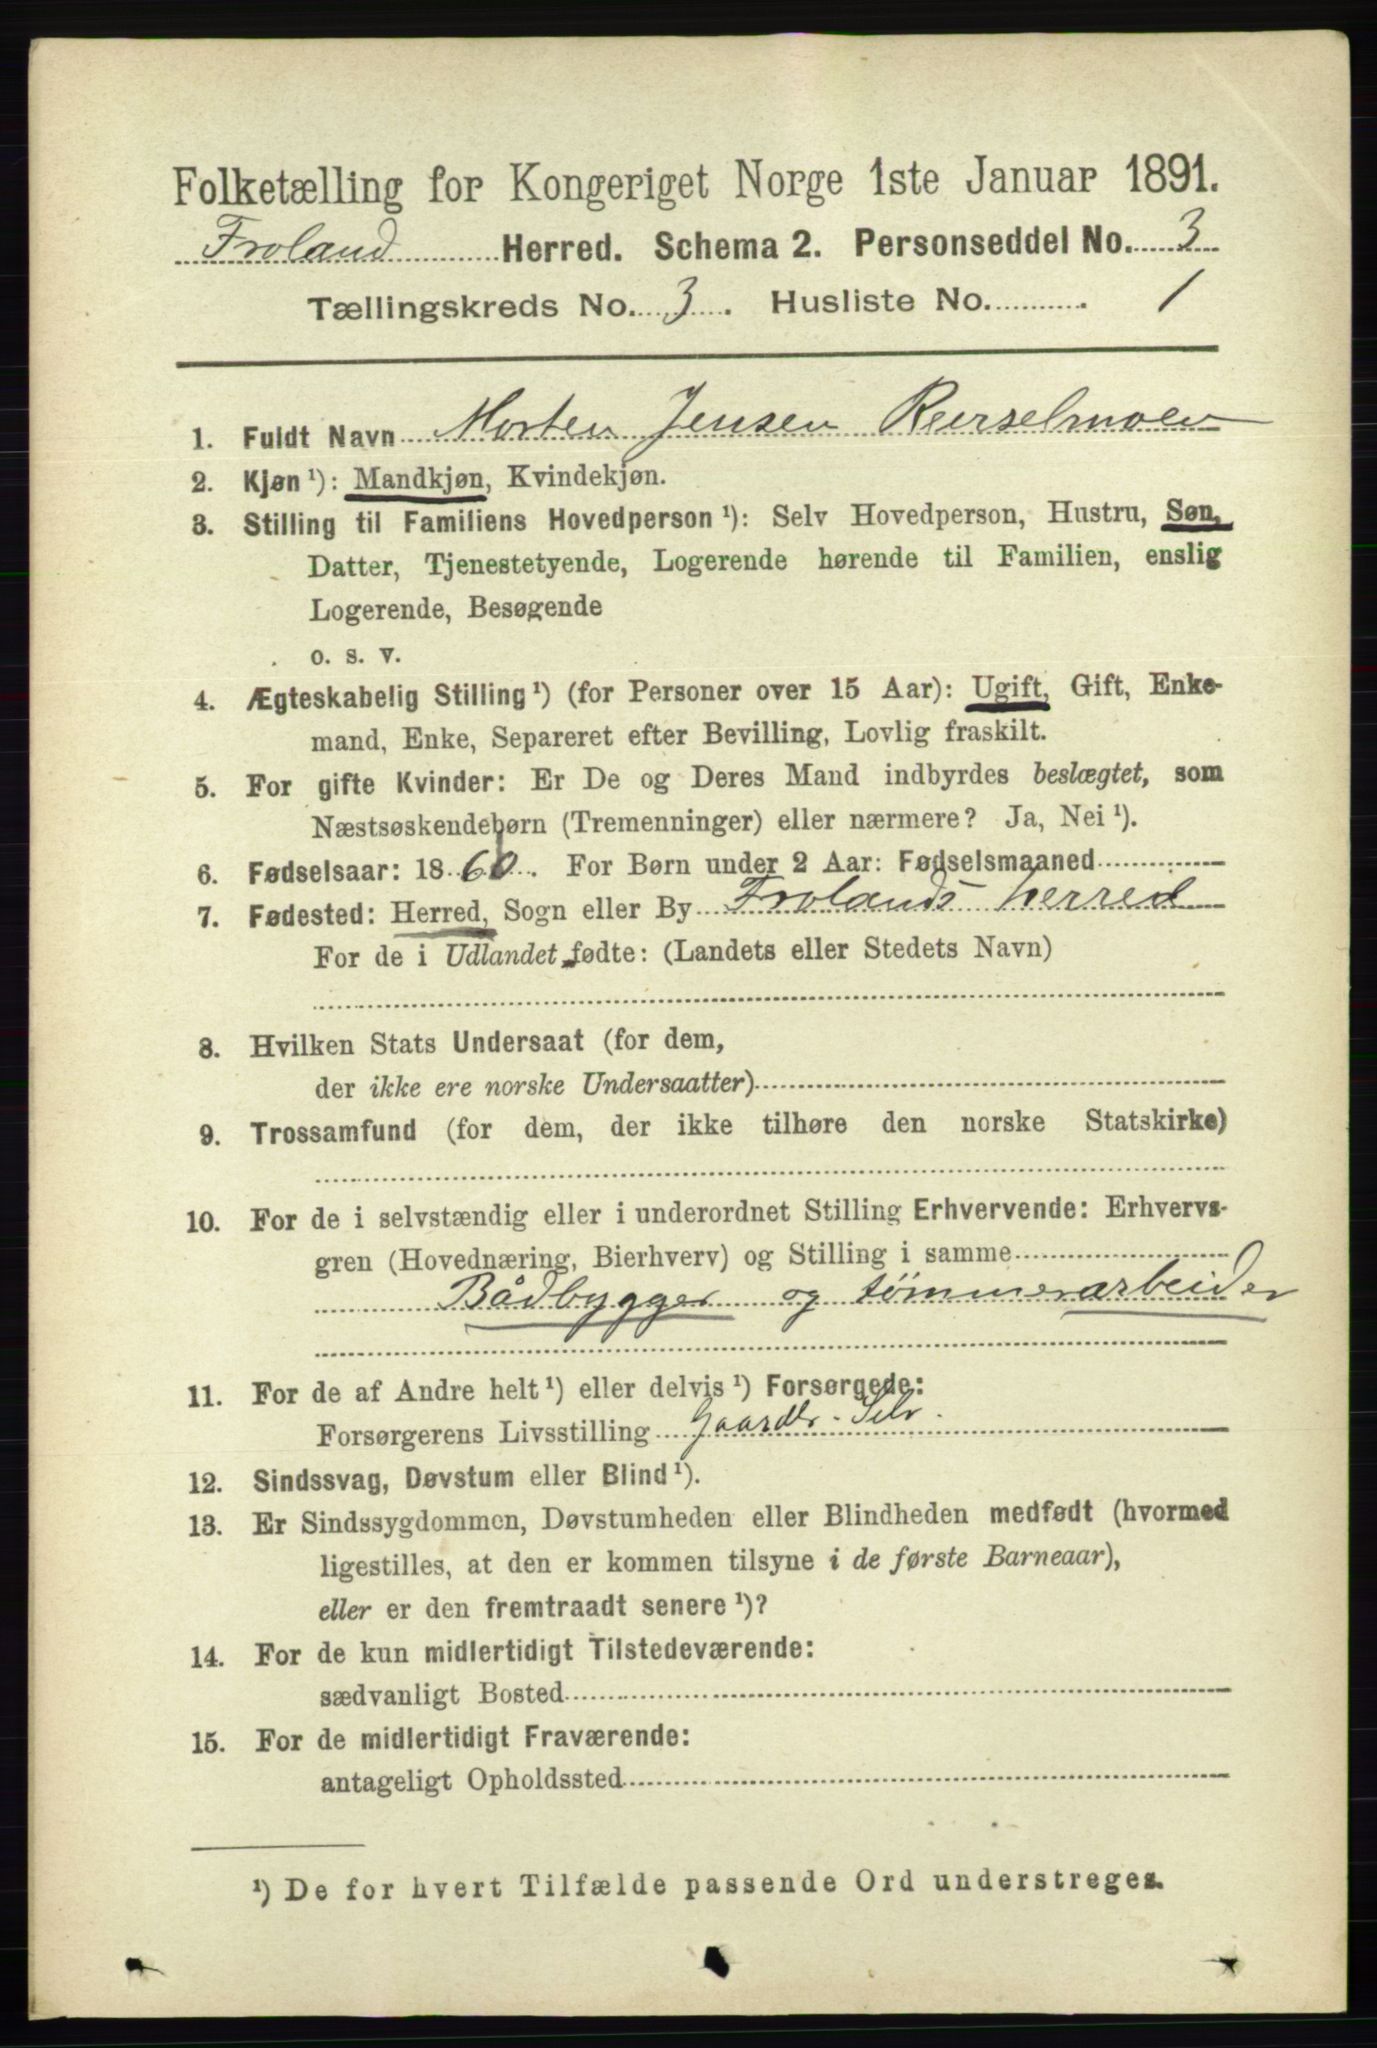 Folketælling for Kongeriget Norge 1ste Januar 1891.
Froland Herred. Schema 2. Personseddel No. 3
Tællingskreds No. 3. Husliste No. 1
1. Fuldt Navn Morten Jensen Reierselmoen
2. Kjøn¹): Mandkjøn, Kvindekjøn.
3. Stilling til Familiens Hovedperson¹): Selv Hovedperson, Hustru, Søn,
Datter, Tjenestetyende, Logerende hørende til Familien, enslig
Logerende, Besøgende
o. s. v.
4. Ægteskabelig Stilling¹) (for Personer over 15 Aar): Ugift, Gift, Enke-
mand, Enke, Separeret efter Bevilling, Lovlig fraskilt.
5. For gifte Kvinder: Er De og Deres Mand indbyrdes beslægtet, som
Næstsøskendebørn (Tremenninger) eller nærmere? Ja, Nei¹).
6. Fødselsaar: 18 . For Børn under 2 Aar: Fødselsmaaned
7. Fødested: Herred, Sogn eller By Frolands herred
For de i Udlandet fødte: (Landets eller Stedets Navn)
8. Hvilken Stats Undersaat (for dem,
der ikke ere norske Undersaatter)
9. Trossamfund (for dem, der ikke tilhøre den norske Statskirke)
10. For de i selvstændig eller i underordnet Stilling Erhvervende: Erhvervs-
gren (Hovednæring, Bierhverv) og Stilling i samme
Bådbygger og tømmerarbeider
11. For de af Andre helt¹) eller delvis¹) Forsørgede:
Forsørgerens Livsstilling Gaardbr. Selv.
12. Sindssvag, Døvstum eller Blind¹).
13. Er Sindssygdommen, Døvstumheden eller Blindheden medfødt (hvormed
ligestilles, at den er kommen tilsyne i de første Barneaar),
eller er den fremtraadt senere¹)?
14. For de kun midlertidigt Tilstedeværende:
sædvanligt Bosted
15. For de midlertidigt Fraværende:
antageligt Opholdssted
¹) De for hvert Tilfælde passende Ord understreges.